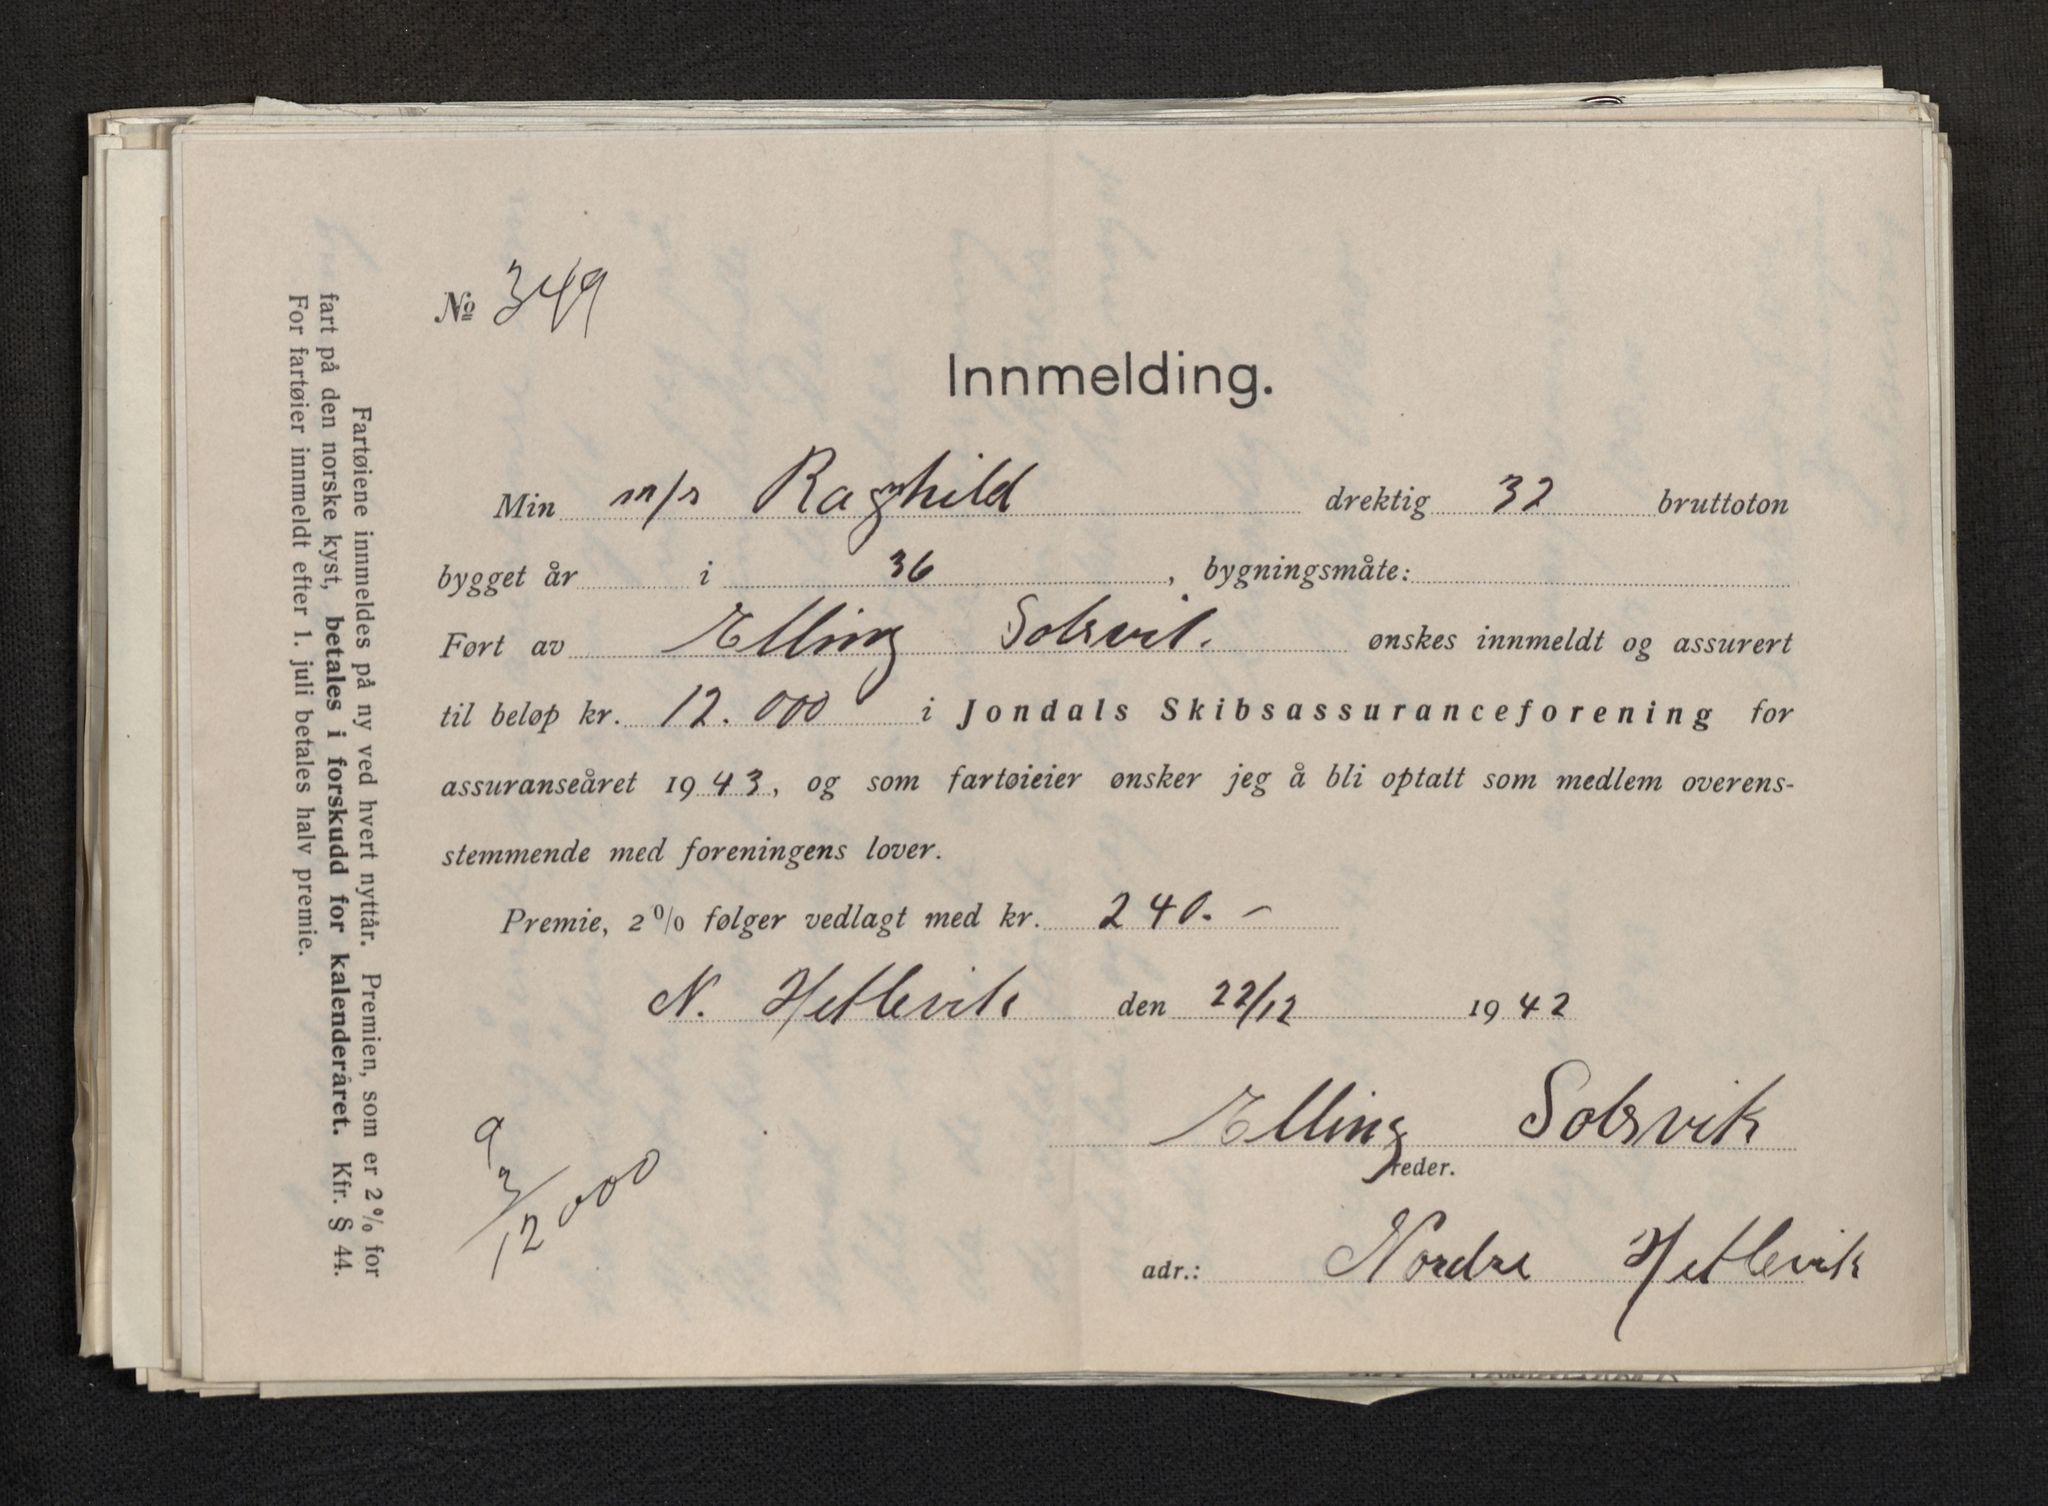 № 349
Innmelding.
Min m/s Ragnhild drektig 32 bruttoton
bygget år i 36, bygningsmåte:
Ført av Elling Solsvik. ønskes innmeldt og assurert
til beløp kr. 12.000 i Jondals Skibsassuranceforening for
assuranseåret 1943, og som fartøieier ønsker jeg å bli optatt som medlem overens-
stemmende med foreningens lover.
Premie, 2% følger vedlagt med kr. 240.-
N. Hetlevik den 22/12 1942
Elling Solsvik
reder.
adr.: Nordre Hetlevik
9
3/12000
Fartøiene innmeldes på ny ved hvert nyttår. Premien, som er 2% for
fart på den norske kyst, betales i forskudd for kalenderåret. Kfr. § 44.
For fartøier innmeldt efter 1. juli betales halv premie.